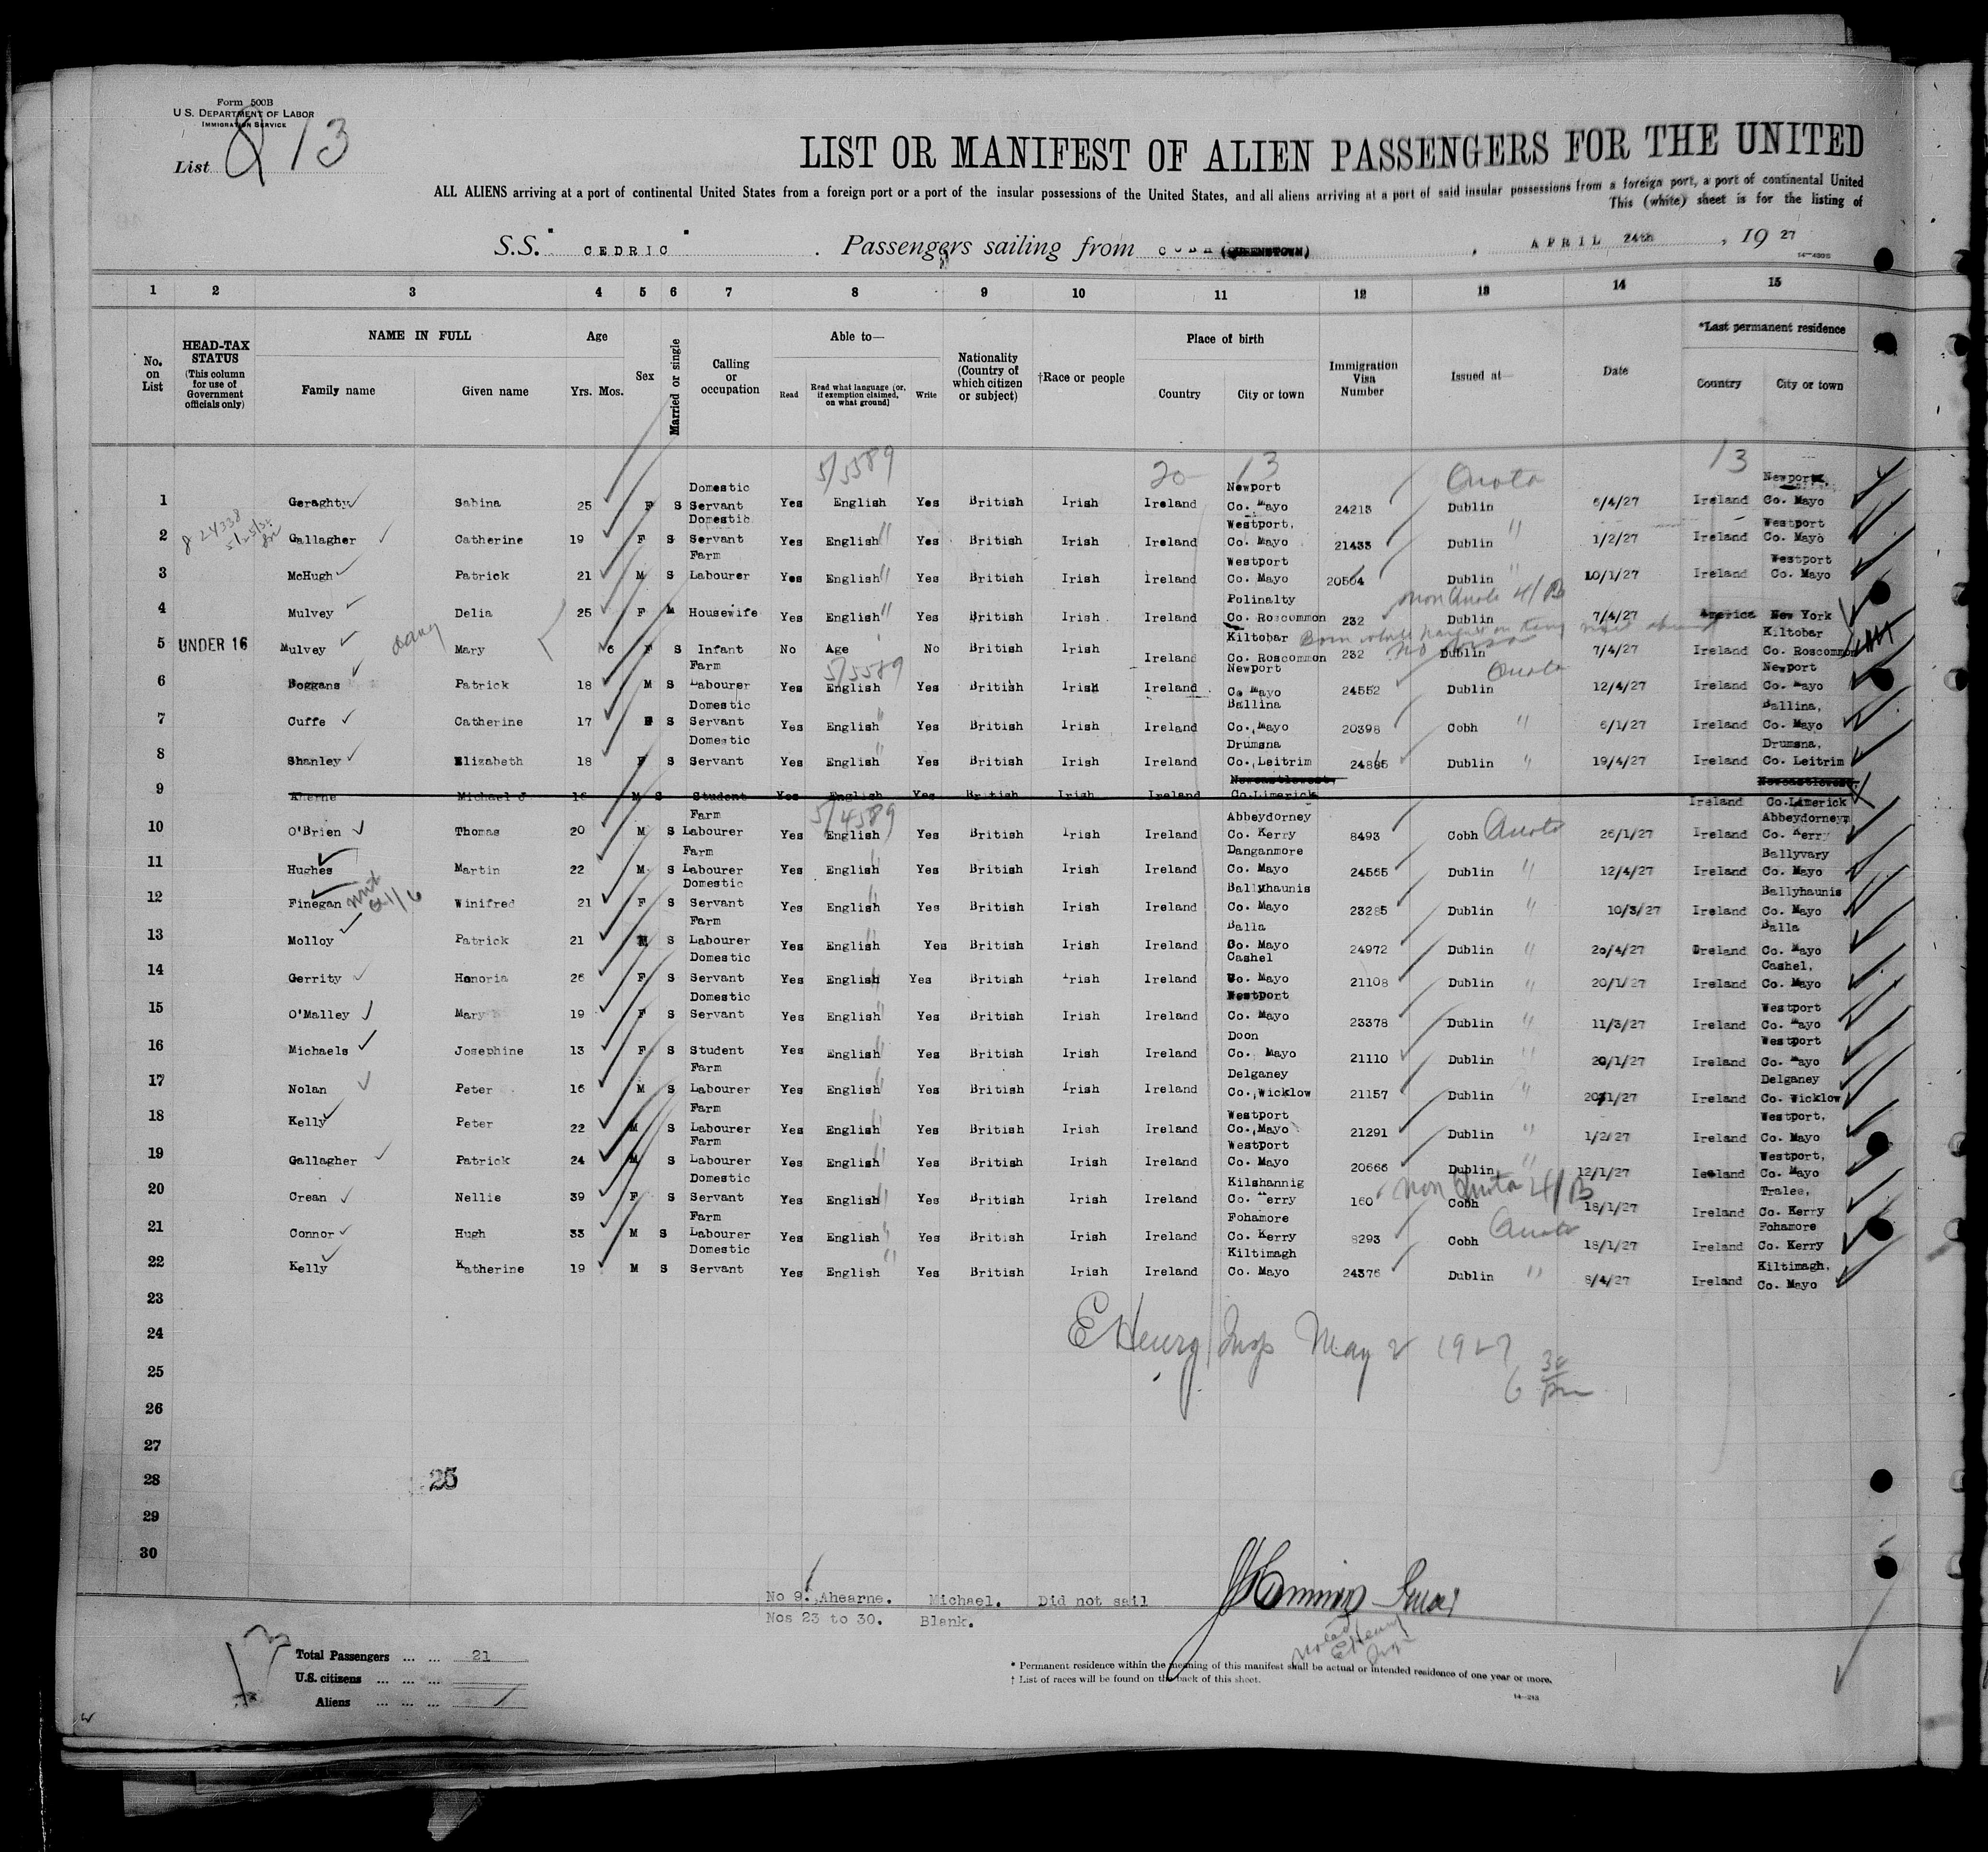 Form 500B
U. S. DEPARTMENT OF LABOR
IMMIGRATION SERVICE
List 13
LIST OR MANIFEST OF ALIEN PASSENGERS FOR THE UNITED
ALL ALIENS arriving at a port of continental United States from a foreign port or a port of the insular possessions of the United States, and all aliens arriving at a port of said insular possessions from a foreign port, a port of continental United
This (white) sheet is for the listing of
S.S. " CEDRIC " . Passengers sailing from COBH (QUEENSTOWN) , APRIL 24th , 19 27
1 2 3 4 5 6 7 8 9 10 11 12 13 14 15
No. on List
HEAD-TAX STATUS (This column for use of Government officials only)
NAME IN FULL Family name Given name
Age Yrs. Mos.
Sex
Married or single
Calling or occupation
Able to— Read Read what language (or, if exemption claimed, on what ground) Write
Nationality (Country of which citizen or subject)
†Race or people
Place of birth Country City or town
Immigration Visa Number
Issued at—
Date
*Last permanent residence Country City or town
5/5589 20 13 Quota 13
1 Geraghty Sabina 25 F S Domestic Servant Yes English Yes British Irish Ireland Newport Co. Mayo 24213 Dublin 6/4/27 Ireland Newport, Co. Mayo
2 Gallagher Catherine 19 F S Domestic Servant Yes English " Yes British Irish Ireland Westport, Co. Mayo 21433 Dublin " 1/2/27 Ireland Westport Co. Mayo
3 McHugh Patrick 21 M S Farm Labourer Yes English " Yes British Irish Ireland Westport Co. Mayo 20504 Dublin " 10/1/27 Ireland Westport Co. Mayo
non Quota 4/B
4 Mulvey Delia 25 F M Housewife Yes English " Yes British Irish Ireland Polinalty Co. Roscommon 232 Dublin 7/4/27 America New York
5 UNDER 16 Mulvey Mary 6 F S Infant No Age No British Irish Ireland Kiltobar Co. Roscommon 232 Dublin 7/4/27 Ireland Kiltobar Co. Roscommon
5/5589 Quota
6 Boggans Patrick 18 M S Farm Labourer Yes English Yes British Irish Ireland Newport Co Mayo 24552 Dublin 12/4/27 Ireland Newport Co. Mayo
7 Cuffe Catherine 17 F S Domestic Servant Yes English " Yes British Irish Ireland Ballina Co. Mayo 20398 Cobh " 6/1/27 Ireland Ballina, Co. Mayo
8 Shanley Elizabeth 18 F S Domestic Servant Yes English " Yes British Irish Ireland Drumsna Co. Leitrim 24885 Dublin " 19/4/27 Ireland Drumsna, Co. Leitrim
9 Aherne Michael J 16 M S Student Yes English Yes British Irish Ireland Newcastlewest, Co.Limerick Ireland Newcastlewest, Co.Limerick
5/4589 Quota
10 O'Brien Thomas 20 M S Farm Labourer Yes English Yes British Irish Ireland Abbeydorney Co. Kerry 8493 Cobh 26/1/27 Ireland Abbeydorney Co. Kerry
11 Hughes Martin 22 M S Farm Labourer Yes English " Yes British Irish Ireland Danganmore Co. Mayo 24565 Dublin " 12/4/27 Ireland Ballyvary Co. Mayo
12 Finegan Winifred 21 F S Domestic Servant Yes English " Yes British Irish Ireland Ballyhaunis Co. Mayo 23285 Dublin " 10/3/27 Ireland Ballyhaunis Co. Mayo
13 Molloy Patrick 21 M S Farm Labourer Yes English " Yes British Irish Ireland Balla Co. Mayo 24972 Dublin " 20/4/27 Ireland Balla Co. Mayo
14 Gerrity Honoria 26 F S Domestic Servant Yes English " Yes British Irish Ireland Cashel Co. Mayo 21108 Dublin " 20/1/27 Ireland Cashel, Co. Mayo
15 O'Malley Mary 19 F S Domestic Servant Yes English " Yes British Irish Ireland Westport Co. Mayo 23378 Dublin " 11/3/27 Ireland Westport Co. Mayo
16 Michaels Josephine 13 F S Student Yes English " Yes British Irish Ireland Doon Co. Mayo 21110 Dublin " 20/1/27 Ireland Westport Co. Mayo
17 Nolan Peter 16 M S Farm Labourer Yes English " Yes British Irish Ireland Delganey Co. Wicklow 21157 Dublin " 20/1/27 Ireland Delganey Co. Wicklow
18 Kelly Peter 22 M S Farm Labourer Yes English " Yes British Irish Ireland Westport Co. Mayo 21291 Dublin " 1/2/27 Ireland Westport, Co. Mayo
19 Gallagher Patrick 24 M S Farm Labourer Yes English " Yes British Irish Ireland Westport Co. Mayo 20666 Dublin " 12/1/27 Ireland Westport, Co. Mayo
non Quota 4/B
20 Crean Nellie 39 F S Domestic Servant Yes English " Yes British Irish Ireland Kilshannig Co. Kerry 160 Cobh 18/1/27 Ireland Tralee, Co. Kerry
Quota
21 Connor Hugh 33 M S Farm Labourer Yes English " Yes British Irish Ireland Fohamore Co. Kerry 8293 Cobh 18/1/27 Ireland Fohamore Co. Kerry
22 Kelly Katherine 19 M S Domestic Servant Yes English " Yes British Irish Ireland Kiltimagh Co. Mayo 24376 Dublin " 8/4/27 Ireland Kiltimagh, Co. Mayo
23
24 E Henry Insp May 2 1927
25 6 30 pm
26
27
28 25
29
30
No 9. Ahearne. Michael. Did not sail
Nos 23 to 30. Blank.
Noted E Henry Insp
Total Passengers ... ... 21
U.S. citizens ... ... ...
Aliens ... ... ...
* Permanent residence within the meaning of this manifest shall be actual or intended residence of one year or more.
† List of races will be found on the back of this sheet.
14—213